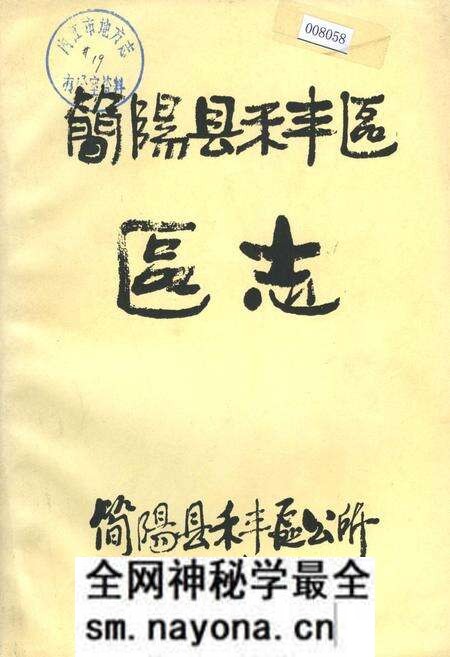 008058
内江市地方志
#19
有
资料
簡陽县禾丰區
區志
简陽县禾丰區公所
全网神秘学最全
sm.nayona.cn